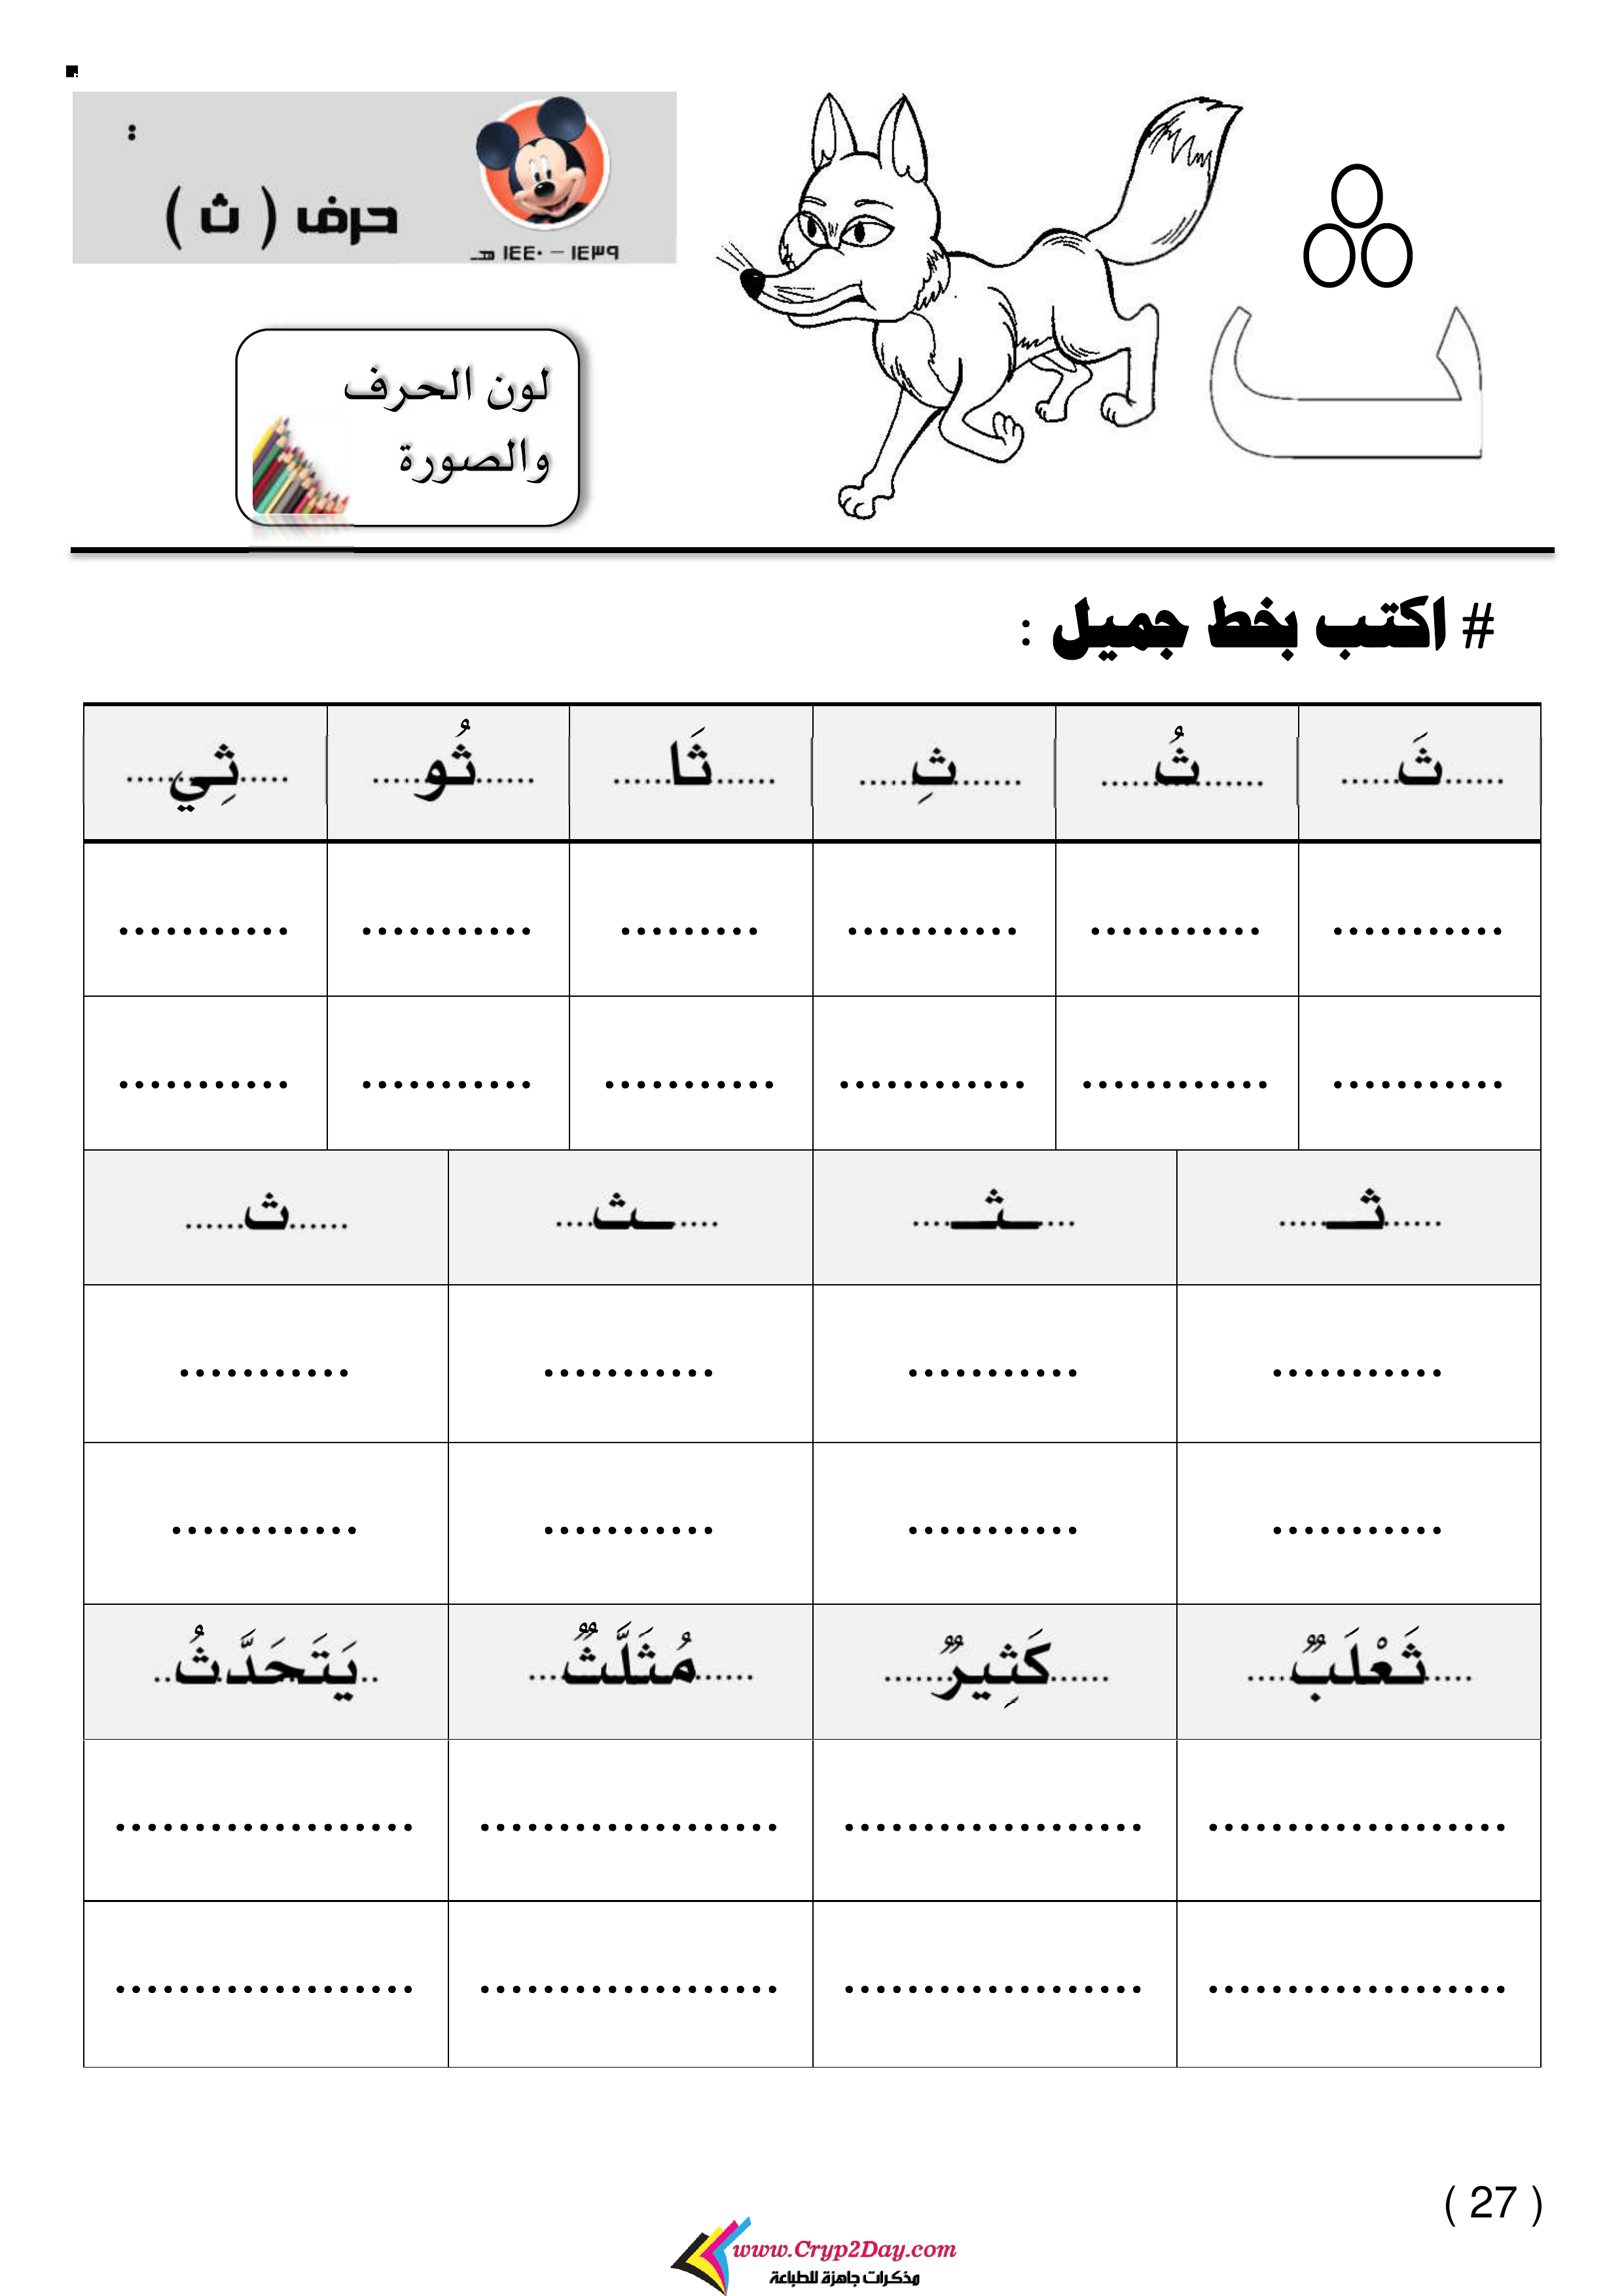 :
حرف ( ث )
١٤٣٩ – ١٤٤٠ هـ
لون الحرف
والصورة
ث
# اكتب بخط جميل :
......ثَ...... ......ثُ..... ......ثِ..... ......ثَا...... ......ثُو..... .....ثِي.....
........... ........... ........... ......... ........... ...........
........... ............ ............ ........... ........... ...........
......ثـ..... ....ـثـ.... ....ـث.... ......ث......
........... ........... ........... ...........
........... ........... ........... ............
.....ثَعْلَبٌ.... ......كَثِيرٌ...... ......مُثَلَّثٌ... ..يَتَحَدَّثُ..
................... ................... ................... ...................
................... ................... ................... ...................
( 27 )
www.Cryp2Day.com
مذكرات جاهزة للطباعة